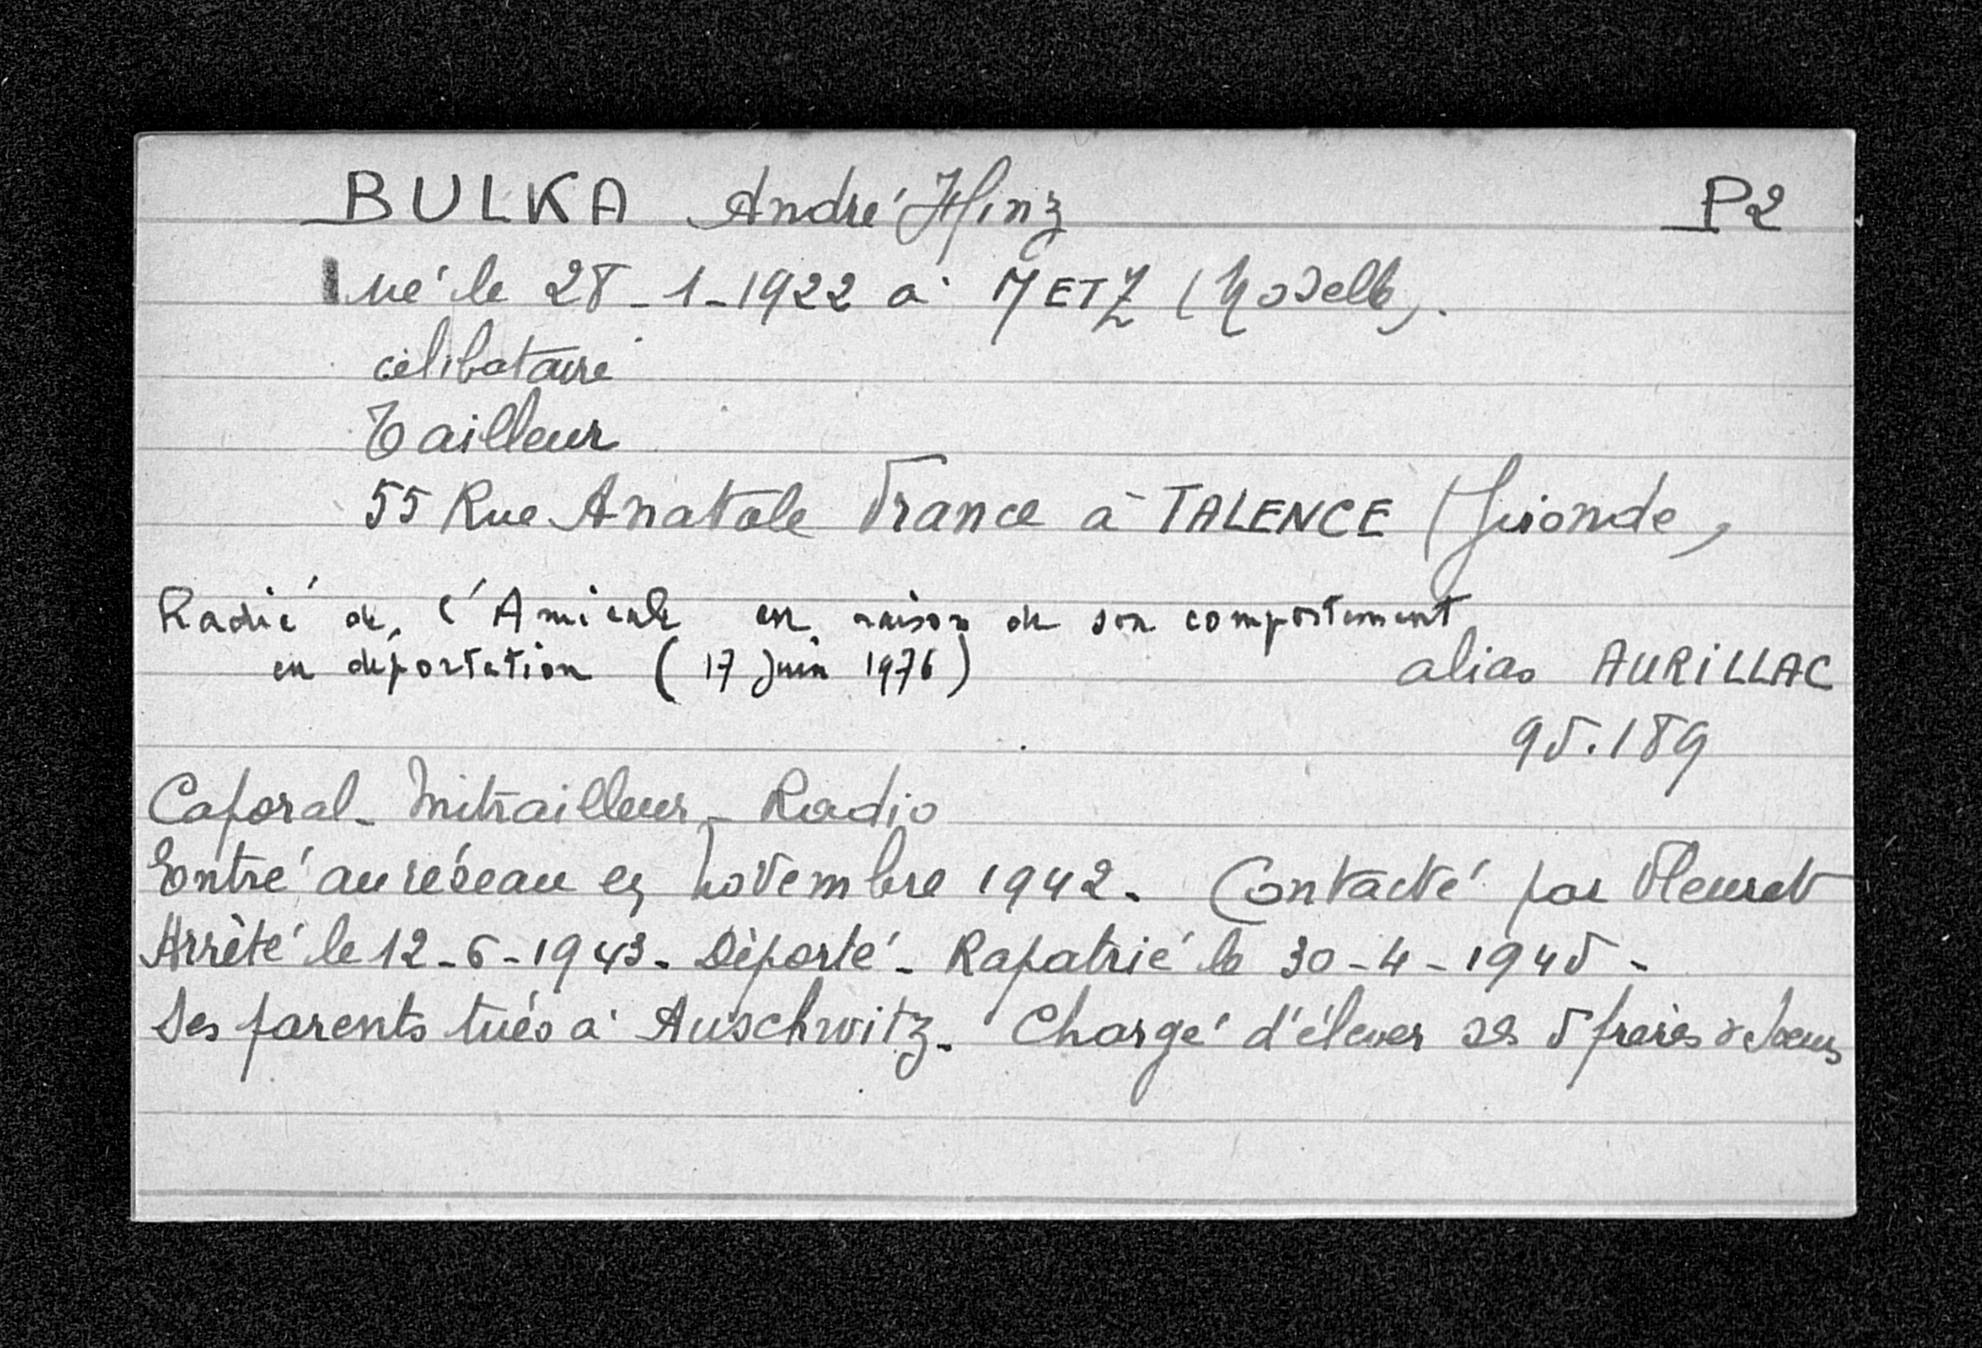 BULKA André Hinz P2
né le 28-1-1922 à METZ (Moselle).
célibataire
Tailleur
55 Rue Anatole France à TALENCE (Gironde)
Radié de l'Amicale en raison de son comportement
en déportation (17 Juin 1976)
alias AURILLAC
95.189
Caporal - Mitrailleur - Radio
Entré au réseau en novembre 1942. Contacté par Fleuret
Arrêté le 12-6-1943. Déporté - Rapatrié le 30-4-1945 -
Ses parents tués à Auschwitz. Chargé d'élever ses 5 frères & soeurs